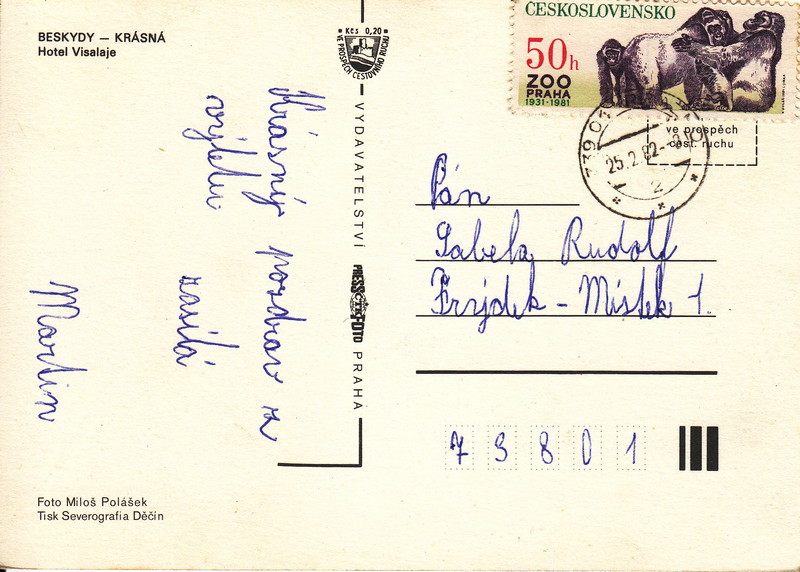 BESKYDY — KRÁSNÁ
Hotel Visalaje
Kčs 0,20
VE PROSPĚCH CESTOVNÍHO RUCHU
ČESKOSLOVENSKO
50h
ZOO
PRAHA
1931-1981
ve prospěch
cest. ruchu
739 0
25.2.82
2
Krásný pozdrav z
výletu zasílá
Martin
VYDAVATELSTVÍ PRESSFOTO PRAHA
ČTK
Pán
Sabela Rudolf
Frýdek - Místek 1
73801
Foto Miloš Polášek
Tisk Severografia Děčín